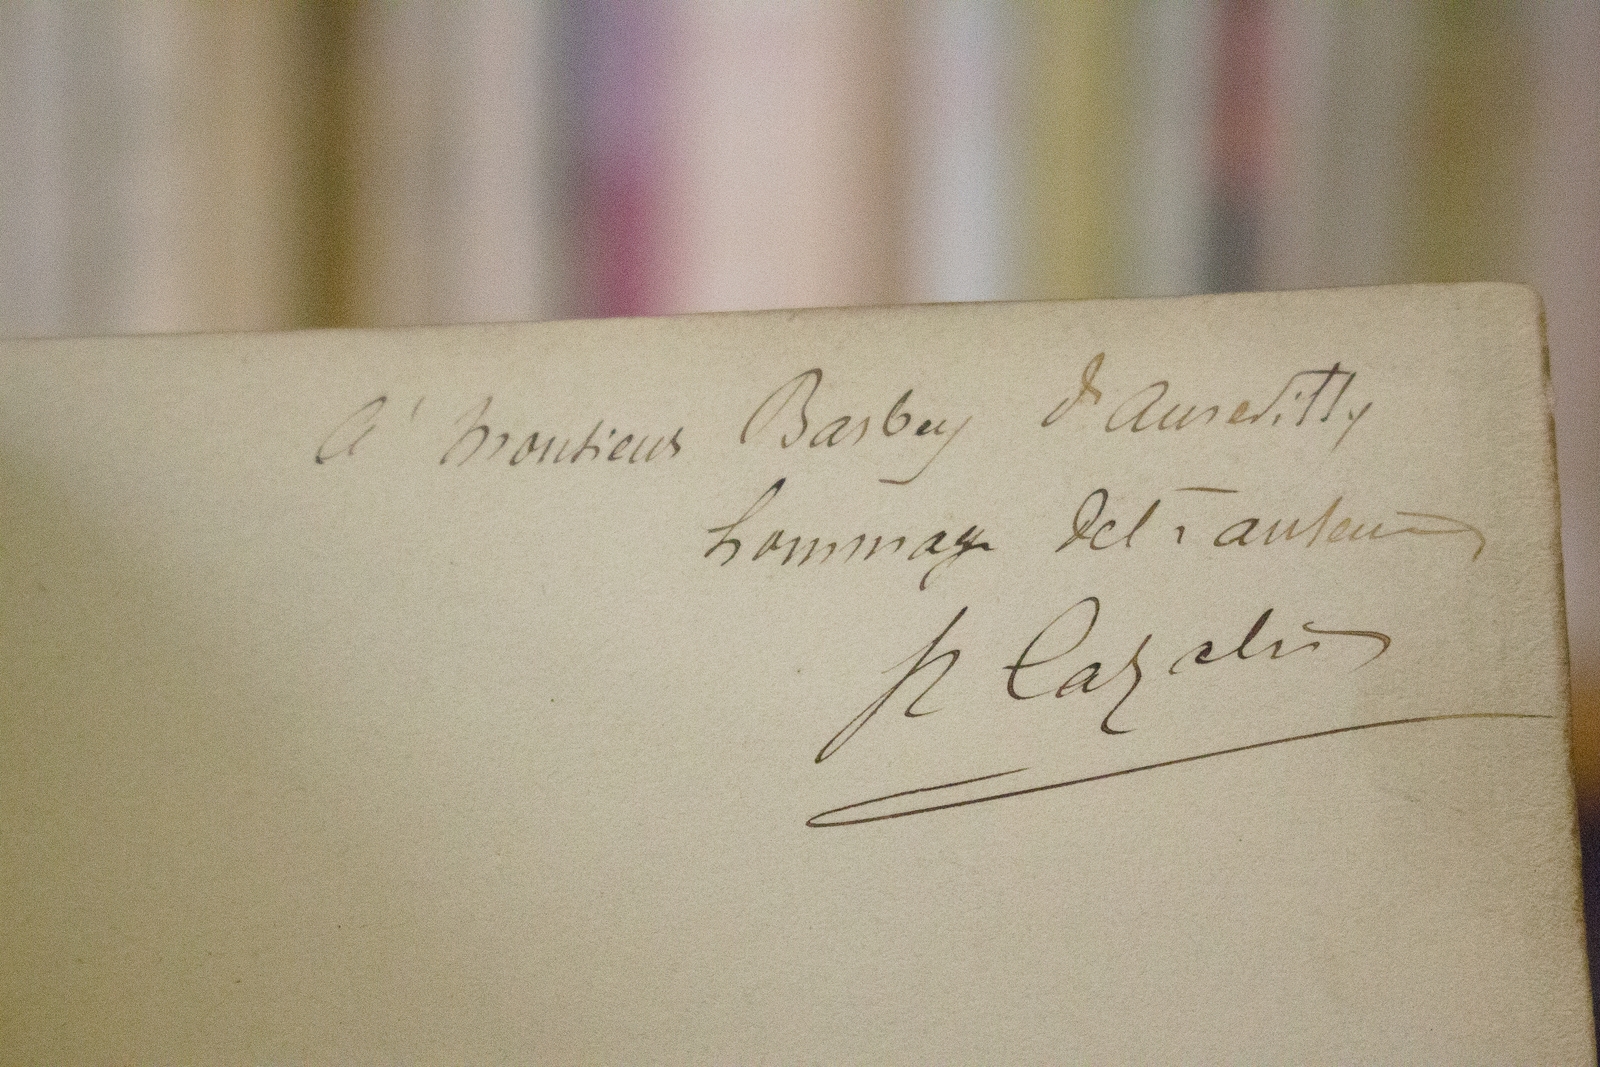 A' Monsieur Barbey d'Aurevilly
hommage de l'auteur
H Cazalis